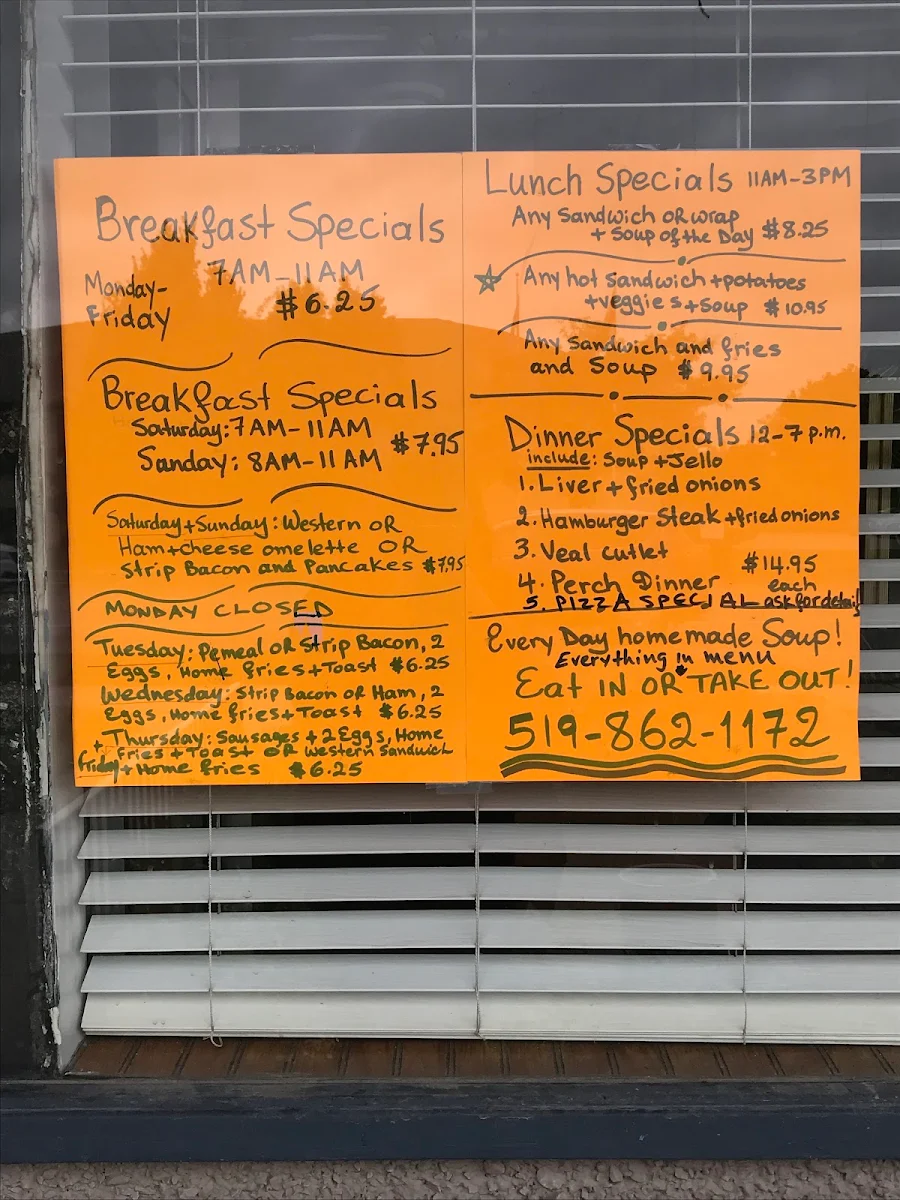 Breakfast Specials
7AM-11AM
Monday-
Friday
$6.25
Breakfast Specials
Saturday: 7AM-11AM
Sanday: 8AM-11AM
$7.95
Saturday+Sunday: Western OR
Ham+cheese omelette OR
Strip Bacon and Pancakes $7.95
MONDAY CLOSED
Tuesday: Pemeal OR Strip Bacon, 2
Eggs, Home fries+Toast $6.25
Wednesday: Strip Bacon or Ham, 2
Eggs, Home fries+Toast $6.25
Thursday: Sausages + 2 Eggs, Home
+ Fries + Toast OR Western Sandwich
Friday + Home fries $6.25
Lunch Specials 11AM-3PM
Any Sandwich OR wrap
+ Soup of the Day $8.25
Any hot sandwich + potatoes
+ veggies + Soup $10.95
Any Sandwich and fries
and Soup $9.95
Dinner Specials 12-7 p.m.
include: Soup + Jello
1. Liver + fried onions
2. Hamburger Steak + fried onions
3. Veal cutlet
$14.95
4. Perch Dinner each
5. PIZZA SPECIAL ask for detail
Every Day homemade Soup!
Everything in menu
Eat IN OR TAKE OUT!
519-862-1172